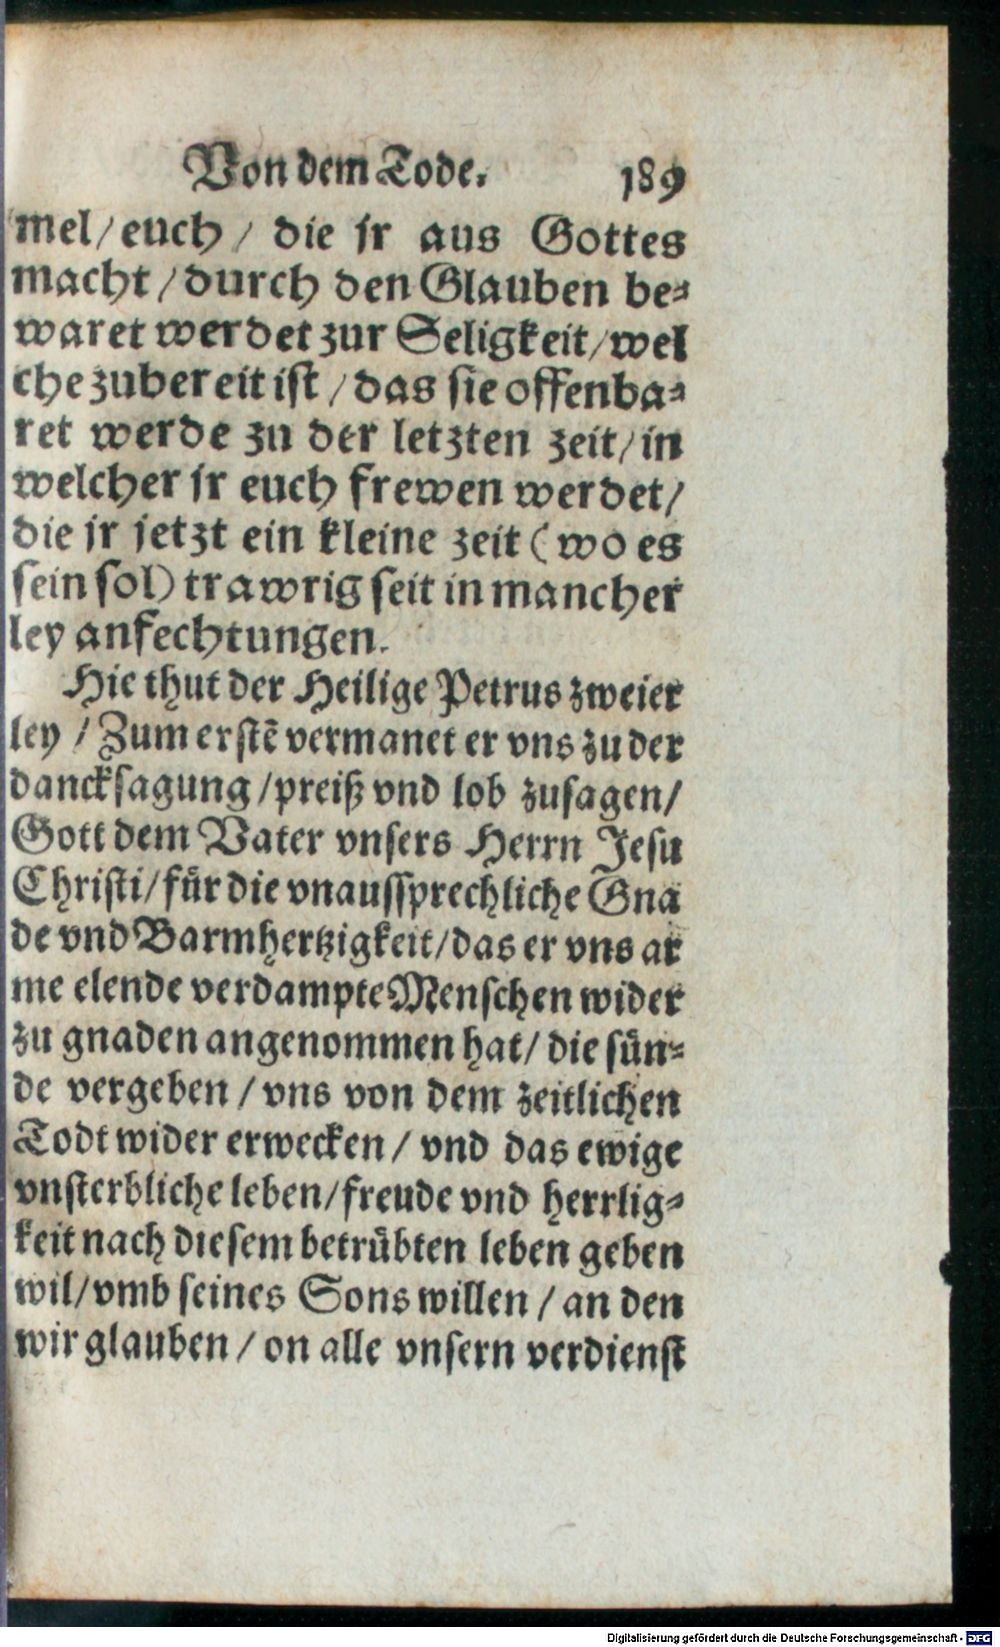 Von dem Tode. 189
mel/ euch / die jr aus Gottes
macht / durch den Glauben be⸗
waret werdet zur Seligkeit/ wel
che zubereit ist / das sie offenba⸗
ret werde zu der letzten zeit/ in
welcher jr euch frewen werdet/
die jr jetzt ein kleine zeit (wo es
sein sol) trawrig seit in mancher
ley anfechtungen.
Hie thut der Heilige Petrus zweier
ley / Zum erstē vermanet er vns zu der
dancksagung / preiß vnd lob zusagen/
Gott dem Vater vnsers Herrn Jesu
Christi/ für die vnaussprechliche Gna
de vnd Barmhertzigkeit/ das er vns ar
me elende verdampte Menschen wider
zu gnaden angenommen hat/ die sün⸗
de vergeben / vns von dem zeitlichen
Todt wider erwecken / vnd das ewige
vnsterbliche leben/ freude vnd herrlig⸗
keit nach diesem betrübten leben geben
wil/ vmb seines Sons willen / an den
wir glauben / on alle vnsern verdienst
Digitalisierung gefördert durch die Deutsche Forschungsgemeinschaft - DFG